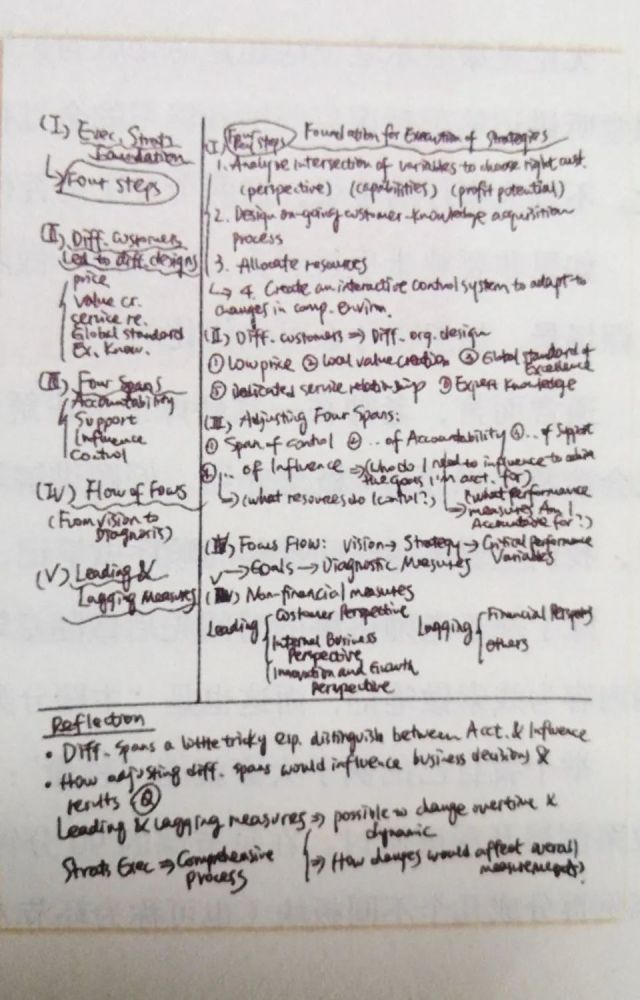 (I) Exec. Strats
Foundation
↳ Four steps
(II) Diff. customers
Led to diff. designs
price
Value cr.
service re.
Global standard
Ex. Know.
(III) Four Spans
Accountability
Support
Influence
Control
(IV) Flow of Focus
(From vision to
Diagnosis)
(V) Leading &
Lagging Measures
(I) Four steps Foundation for Execution of Strategies
1. Analyse intersection of variables to choose right cust.
(perspective) (capabilities) (profit potential)
2. Design on-going customer-knowledge acquisition
process
3. Allocate resources
↳ 4. Create an interactive control system to adapt to
changes in comp. environ.
(II) Diff. customers ⇒ Diff. org. design
① Low price ② Local value creation Global standard of
Excellence
Dedicated service relationship Expert Knowledge
(III) Adjusting Four Spans:
① Span of control ② .. of Accountability .. of Support
.. of Influence ⇒ (Who do I need to influence to
the goals I'm acct. for)
↳ (what resources do I control?) (what performance
measures Am I
Accountable for?)
Focus Flow: vision → Strategy → Critical performance
Variables
→ Goals → Diagnostic Measures
Non-financial measures
Leading { Customer Perspective
Internal Business
Perspective
Innovation and Growth
Perspective
Lagging { Financial
others
Reflection
• Diff. spans a little tricky esp. distinguish between Acct. & Influence
• How adjusting diff. spans would influence business decisions &
results Q
Leading & Lagging measures ⇒ possible to change overtime &
dynamic
⇒ How changes would affect overall
measurements
Strats Exec ⇒ Comprehensive
process